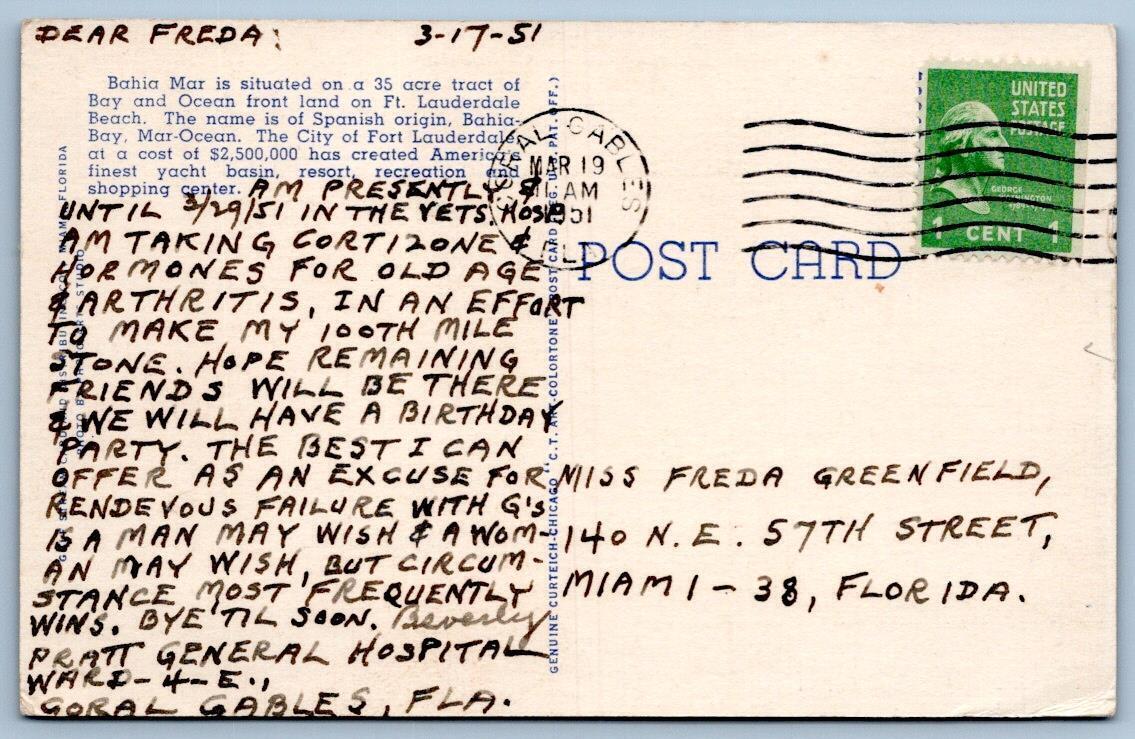 DEAR FREDA: 3-17-51
Bahia Mar is situated on a 35 acre tract of
Bay and Ocean front land on Ft. Lauderdale
Beach. The name is of Spanish origin, Bahia-
Bay, Mar-Ocean. The City of Fort Lauderdale
at a cost of $2,500,000 has created America's
finest yacht basin, resort, recreation and
shopping center.
AM PRESENTLY &
UNTIL 3/29/51 IN THE VETS HOSP.
AM TAKING CORTIZONE &
HORMONES FOR OLD AGE
& ARTHRITIS, IN AN EFFORT
TO MAKE MY 100TH MILE
STONE. HOPE REMAINING
FRIENDS WILL BE THERE
& WE WILL HAVE A BIRTHDAY
PARTY. THE BEST I CAN
OFFER AS AN EXCUSE FOR
RENDEVOUS FAILURE WITH G'S
IS A MAN MAY WISH & A WOM-
AN MAY WISH, BUT CIRCUM-
STANCE MOST FREQUENTLY
WINS. BYE 'TIL SOON. Beverly
PRATT GENERAL HOSPITAL
WARD-4-E.,
CORAL GABLES, FLA.
GENUINE CURTEICH-CHICAGO "C.T. ART-COLORTONE" POST CARD (REG. U.S. PAT. OFF.)
CORAL GABLES
MAR 19
AM
1951
FLA.
UNITED
STATES
POSTAGE
GEORGE
WASHINGTON
1 CENT 1
POST CARD
MISS FREDA GREENFIELD,
140 N.E. 57TH STREET,
MIAMI-38, FLORIDA.